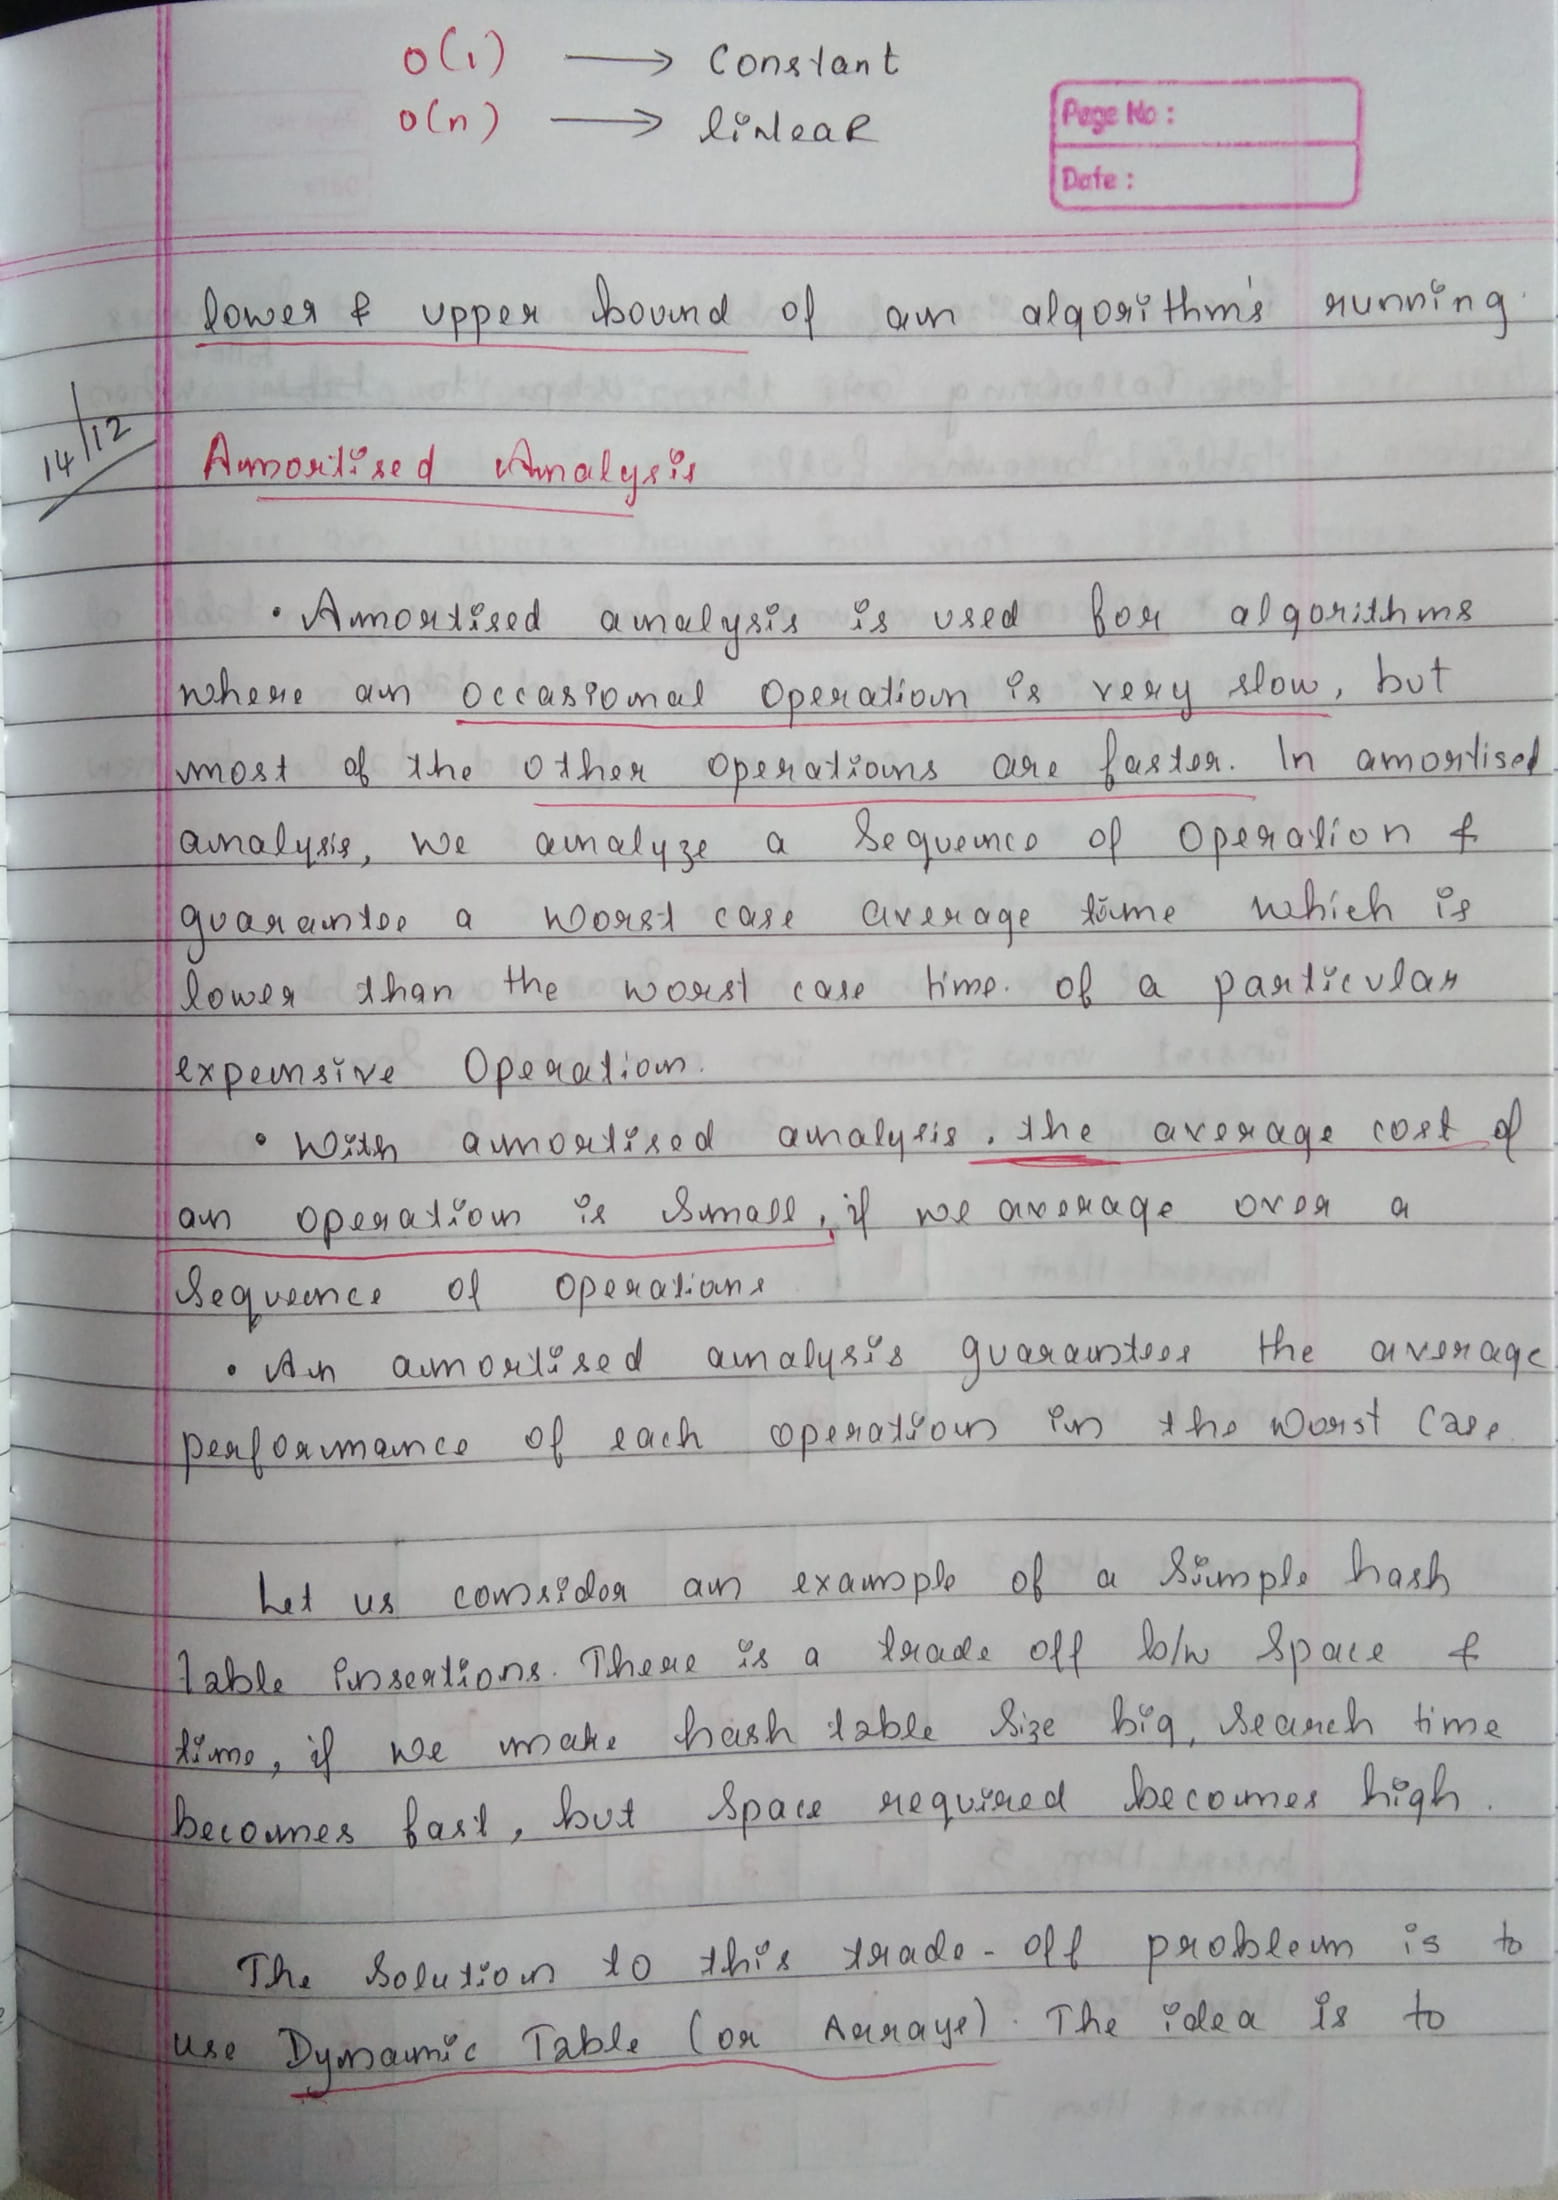 O(1) → Constant
O(n) → linear
Page No :
Date :
lower & upper bound of an algorithm's running
14/12
Amortised Analysis
• Amortised analysis is used for algorithms
where an occasional operation is very slow, but
most of the other operations are faster. In amortised
analysis, we analyze a sequence of operation &
guarantee a worst case average time which is
lower than the worst case time. of a particular
expensive Operation.
• With amortised analysis, the average cost of
an operation is small, if we average over a
sequence of operations
• An amortised analysis guarantees the average
performance of each operation in the worst case.
Let us consider an example of a simple hash
table insertions. There is a trade off b/w space &
time, if we make hash table size big, search time
becomes fast, but space required becomes high.
The solution to this trade-off problem is to
use Dynamic Table (or Arrays). The idea is to